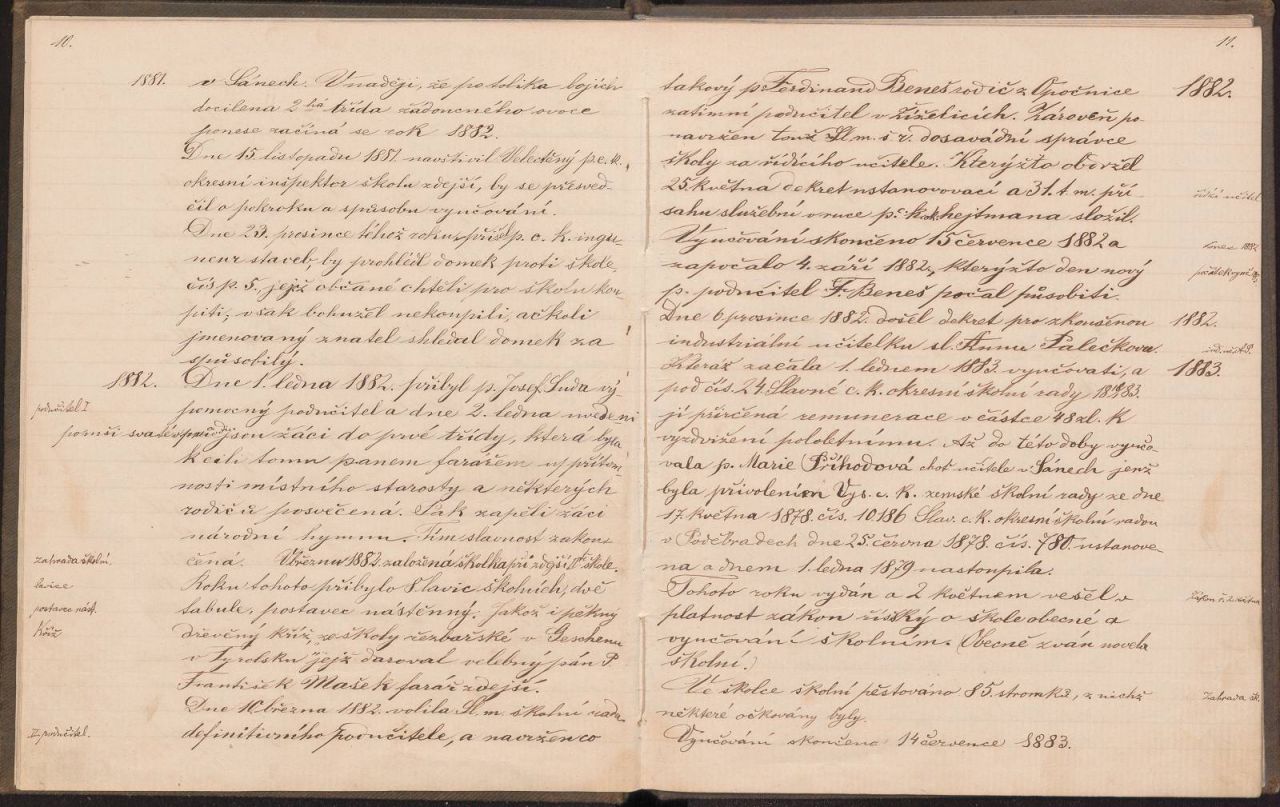 10.
1881.
v Sánech. V naději, že po tolika bojích
docílena 2há třída žádoucného ovoce
ponese začíná se rok 1882.
Dne 15. listopadu 1881 navštívil Velectěný p. c. k.
okresní inspektor školu zdejší, by se přesved-
čil o pokroku a spůsobu vyučování.
Dne 23. prosince téhož roku přišel p. c. k. inge-
neur staveb, by prohlédl domek proti škole,
čís p. 5. jejž občané chtěli pro školu kou-
piti, však bohužel nekoupili, ačkoli
jmenovaný znatel shledal domek za
spůsobilý.
1882.
Dne 1. ledna 1882. přibyl p. Josef Suda vý-
podučitel I
pomocný podučitel a dne 2. ledna uvedeni
jsou žáci do prvé třídy, která byla
k cíli tomu panem farářem u přítom-
nosti místního starosty a některých
rodičů posvěcena. Pak zapěli žáci
národní hymnu. Tím slavnost zakon-
čena. V březnu 1882. založena školka při zdejší škole.
zahrada školní.
Roku tohoto přibylo 8 lavic školních, dvě
lavice
tabule, postavec nástěnný. Jakož i pěkný
postavec nást.
dřevěný kříž, ze školy řezbarské v Geschenu
Kříž
v Tyrolsku jejž daroval velebný pán P.
František Mašek farář zdejší.
Dne 10. března 1882. volila Sl. m. školní rada
definitivního podučitele, a navržen co
II podučitel.
11.
takový p. Ferdinand Beneš rodič z Opočnice
1882.
zatimní podučitel v Žiželicích. Zároveň po
navržen touž Sl. m. š r. dosavádní správce
školy za řídícího učitele. Kterýžto obdržel
25. května dekret ustanovovací a 31. t. m. pří-
řídící učitel
sahu služební v ruce p. c. k. ok. hejtmana složil.
Vyučování skončeno 15 července 1882 a
konec 1882
započalo 4. září 1882, kterýžto den nový
p. podučitel F. Beneš počal působiti.
Dne 6 prosince 1882. došel dekret pro zkoušenou
1882.
industriální učitelku sl. Annu Palečkovu.
Kteráž začala 1. lednem 1883. vyučovati, a
1883.
pod čís. 24. Slavné c. k. okresní školní rady
jí přiřčená remunerace v částce 48 zl. k
vyzdvižení pololetnímu. Až do této doby vyučo-
vala p. Marie Příhodová choť učitele v Sánech jenž
byla přivolením Vys. c. k. zemské školní rady ze dne
17. května 1878. čís. 10186 Slav. c. k. okresní školní radou
v Poděbradech dne 25. června 1878. čís. 780. ustanove-
na a dnem 1. ledna 1879 nastoupila.
Tohoto roku vydán a 2 květnem vešel v
platnost zákon říšský o škole obecné a
vyučování školním. (Obecně zván novela
školní.)
Ve školce školní pěstováno 85. stromků, z nichž
zahrada šk.
některé očkovány byly.
Vyučování skončeno 14 července 1883.